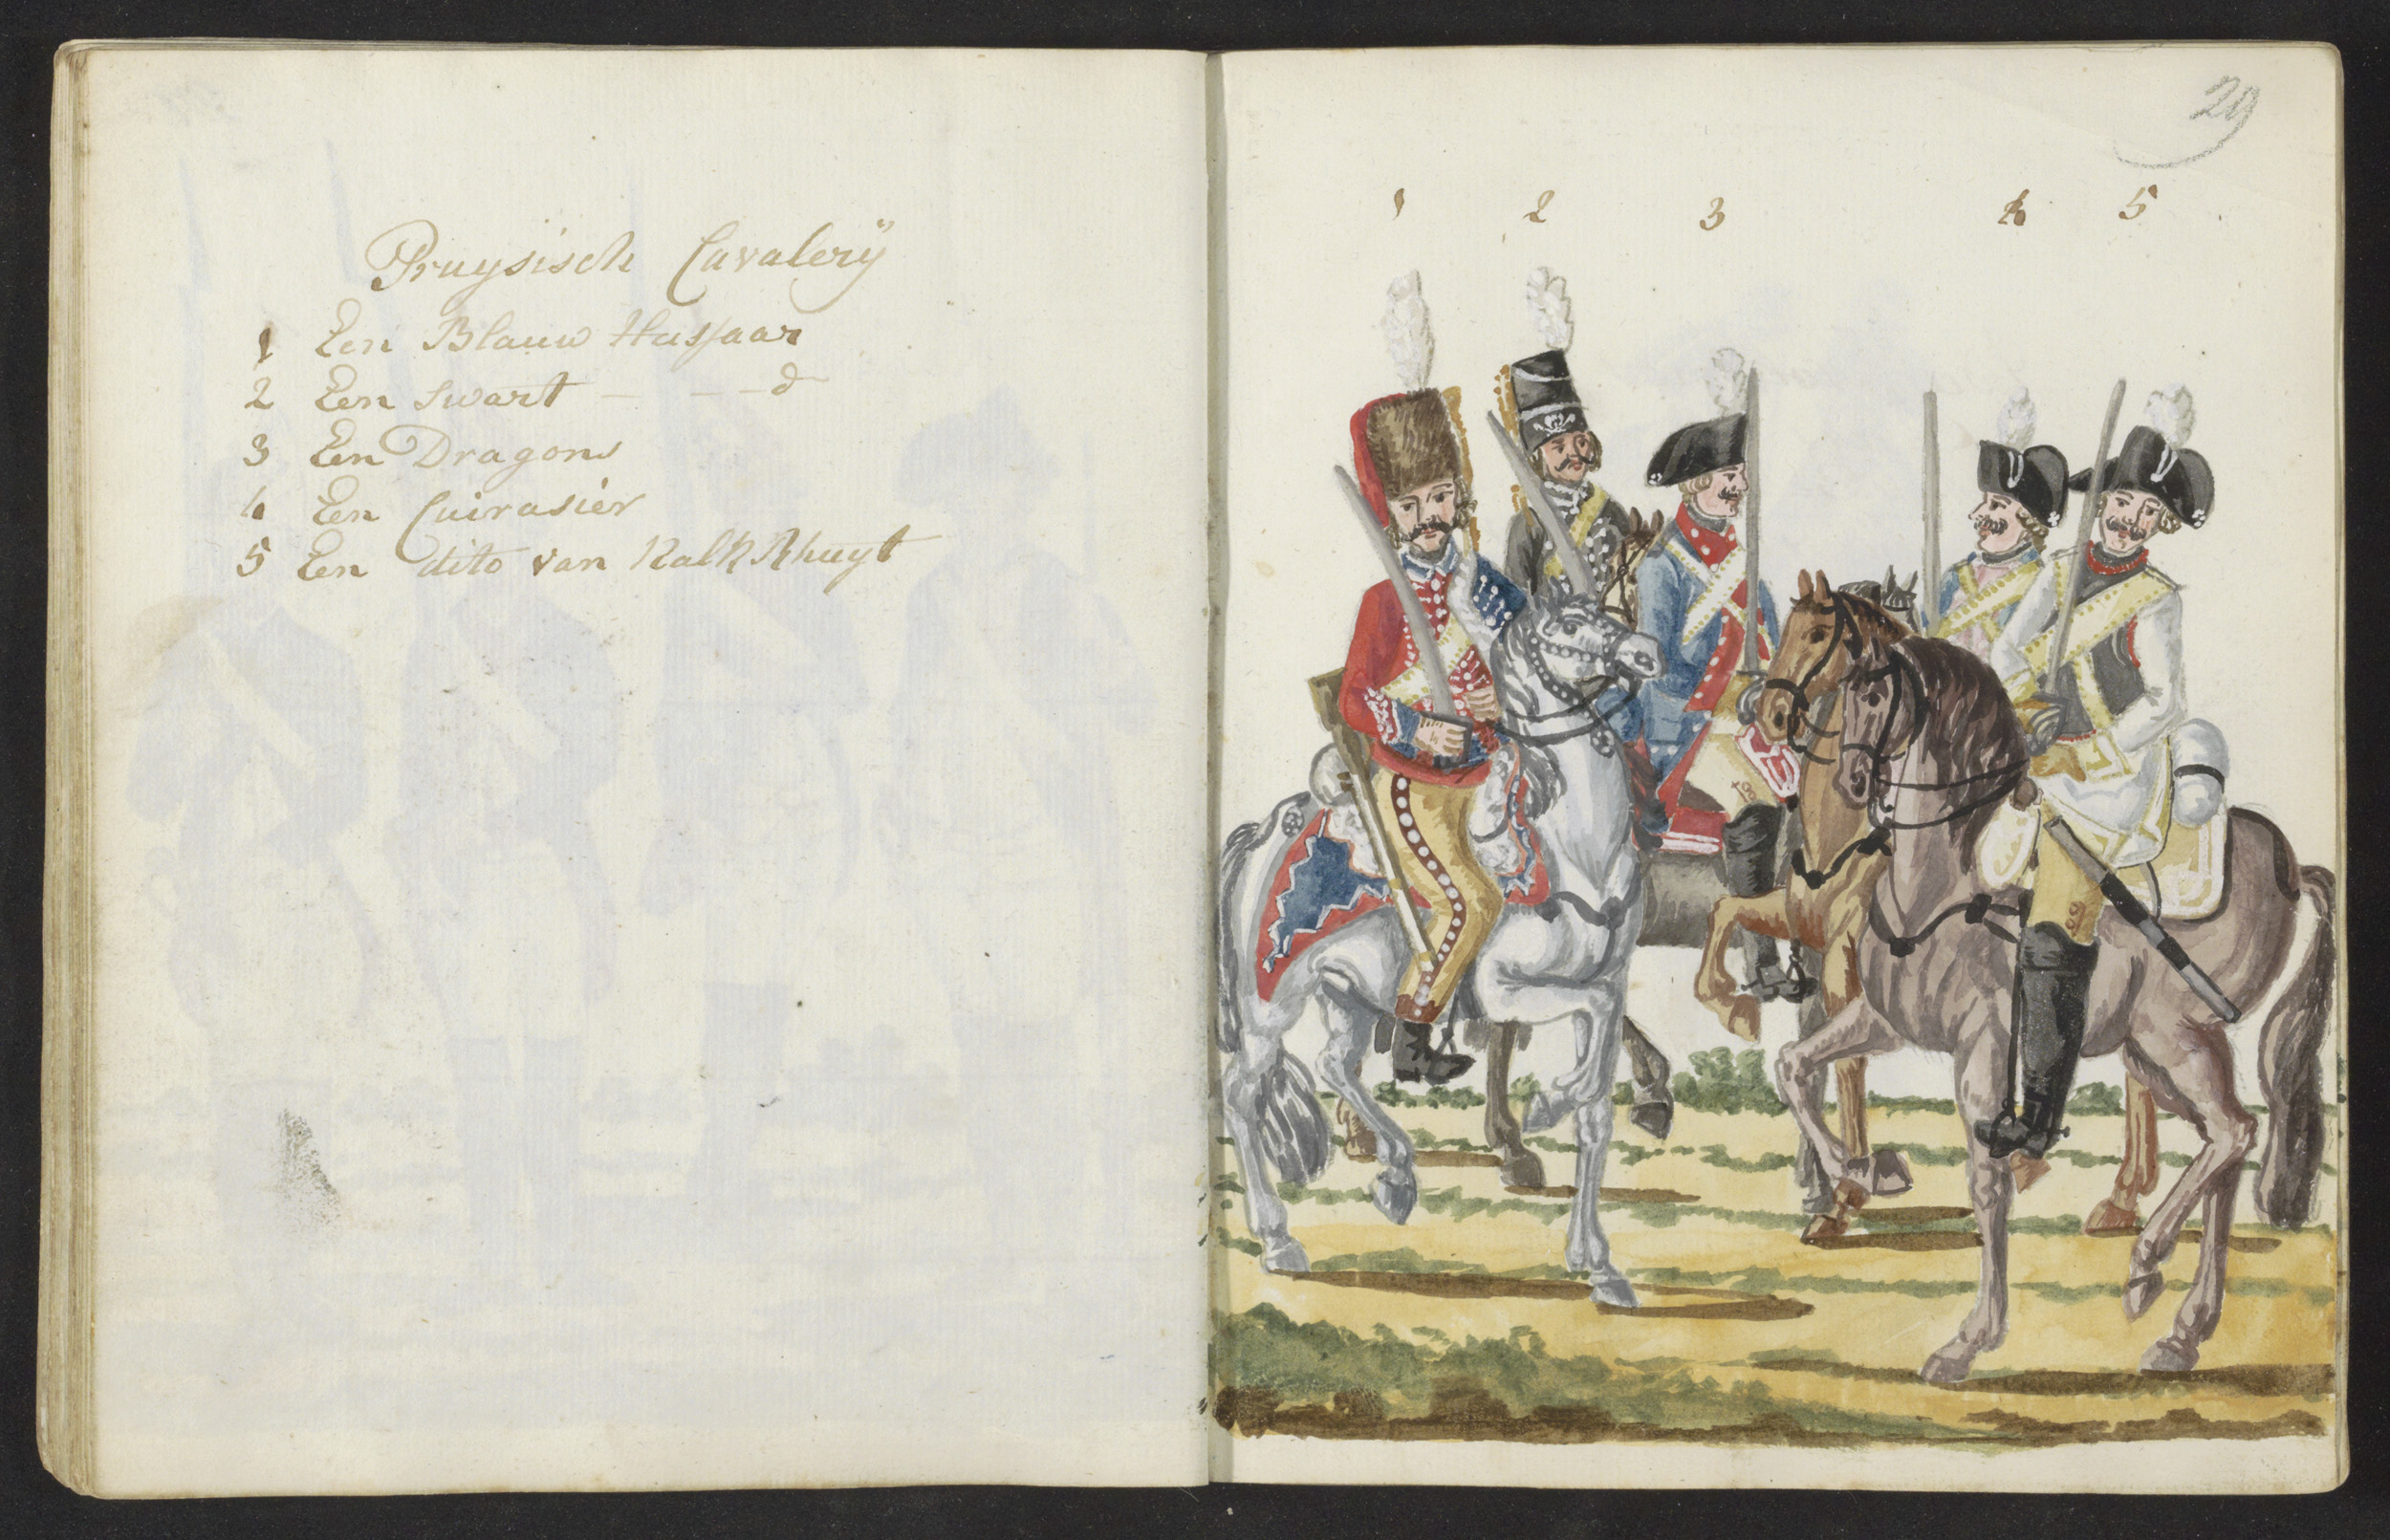 Pruysisch Cavalerÿ
1 Een Blauw Hussaar
2 Een swart — — — dº
3 Een Dragons
4 Een Cuirasier
5 Een dito van KalkRhuyt
29
1 2 3 4 5